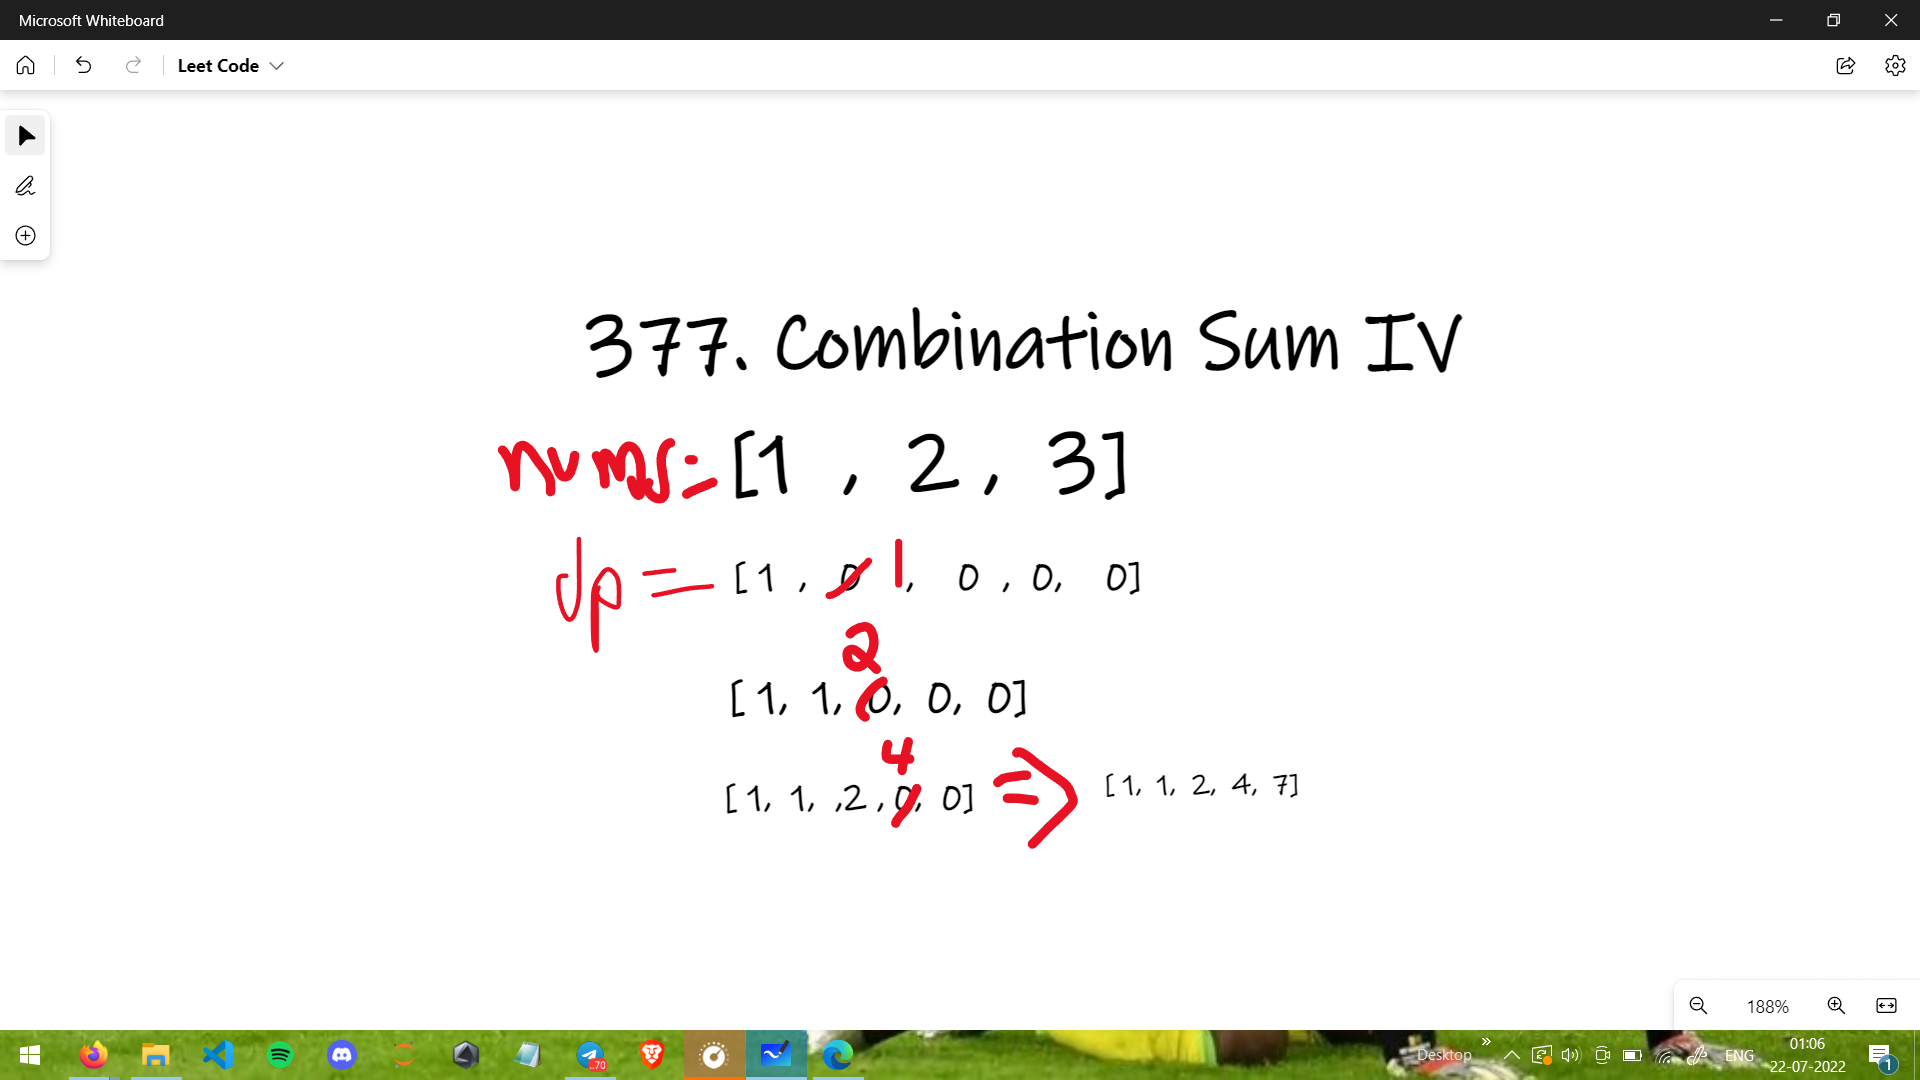 Microsoft Whiteboard
Leet Code
377. Combination Sum IV
nums= [1 , 2 , 3]
dp= [1 , 0 1, 0 , 0, 0]
2
[1, 1, 0, 0, 0]
4
[1, 1, ,2 ,0, 0] => [1, 1, 2, 4, 7]
188%
..70
Desktop
ENG
01:06
22-07-2022
1